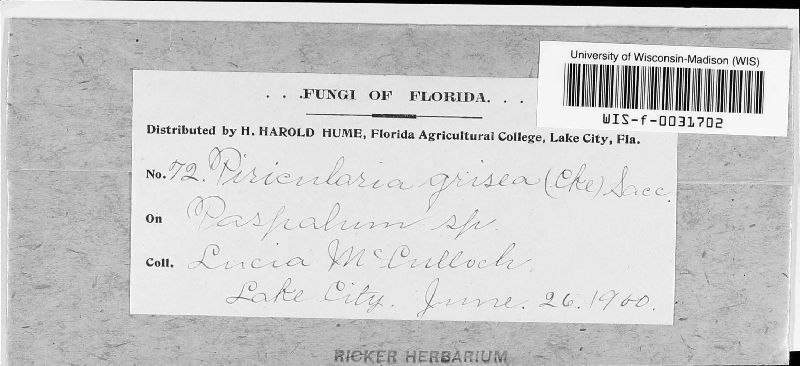 University of Wisconsin-Madison (WIS)
WIS-f-0031702
. . .FUNGI OF FLORIDA. . .
Distributed by H. HAROLD HUME, Florida Agricultural College, Lake City, Fla.
No. 72. Piricularia grisea (Cke) Sacc.
On Paspalum sp.
Coll. Lucia McCulloch.
Lake City. June. 26. 1900.
RICKER HERBARIUM